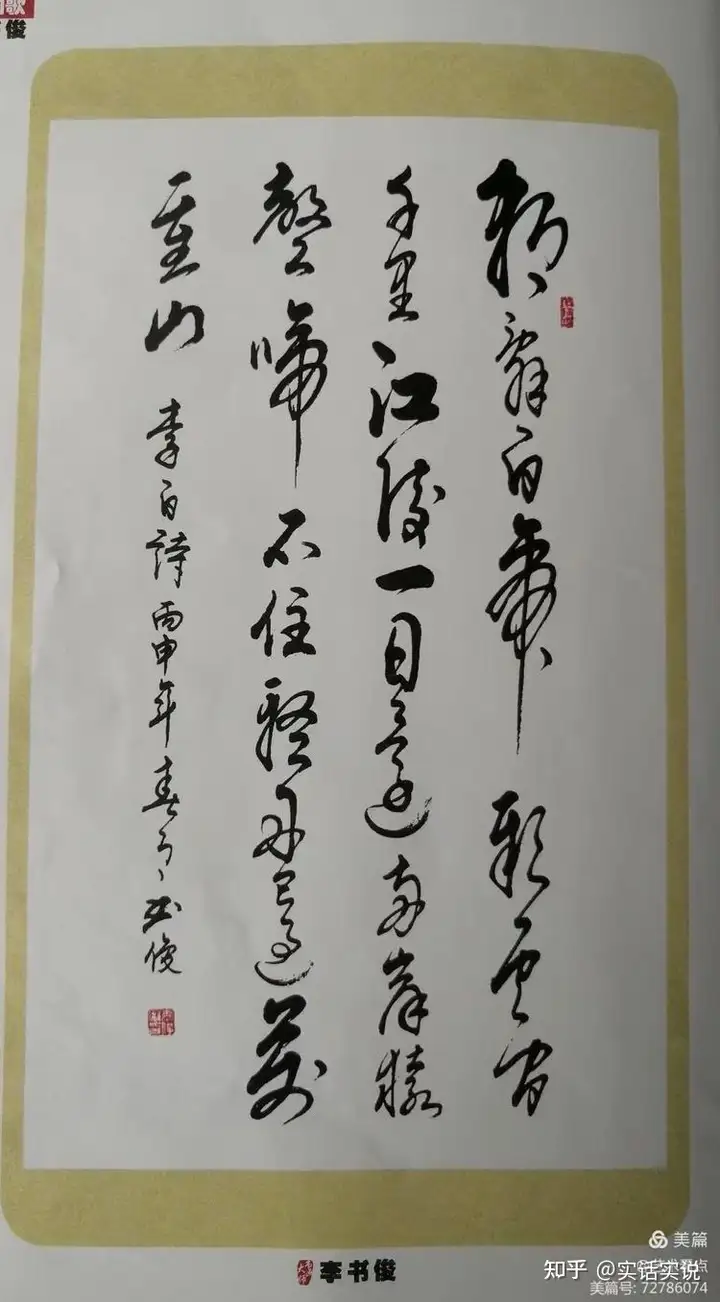 歌
俊
朝辞白帝彩云间
千里江陵一日還两岸猿
聲啼不住轻舟已過萬
重山 李白詩丙申年春月书俊
李书俊
美篇
知乎 @实话实说
美篇号: 72786074